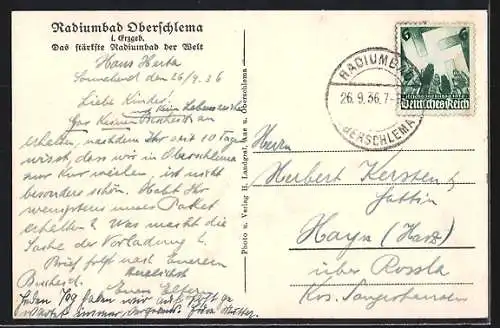 Radiumbad Oberschlema
i. Erzgeb.
Das stärkste Radiumbad der Welt
Haus Herta
Sonnabend den 26/9 36
Liebe Kinder!
Gar kein Lebenszeichen
erhalten, nachdem Ihr seit 10 Tagen
wisst, dass wir in Oberschlema
zur Kur weilen, ist nicht
besonders schön. Habt Ihr
wenigstens unser Paket
erhalten? Was macht die
Sache der Vorladung?
Brief folgt nach Eurem
Bescheid. Herzlichst
Eure Eltern
Photo u. Verlag H. Landgraf, Aue u. Oberschlema
RADIUMBAD
26. 9. 36. 7-
OBERSCHLEMA
6 6
Reichsparteitag 1936
Deutsches Reich
Herrn
Herbert Kersten &
Gattin
Hayn (Harz)
über Rossla
Krs. Sangerhausen